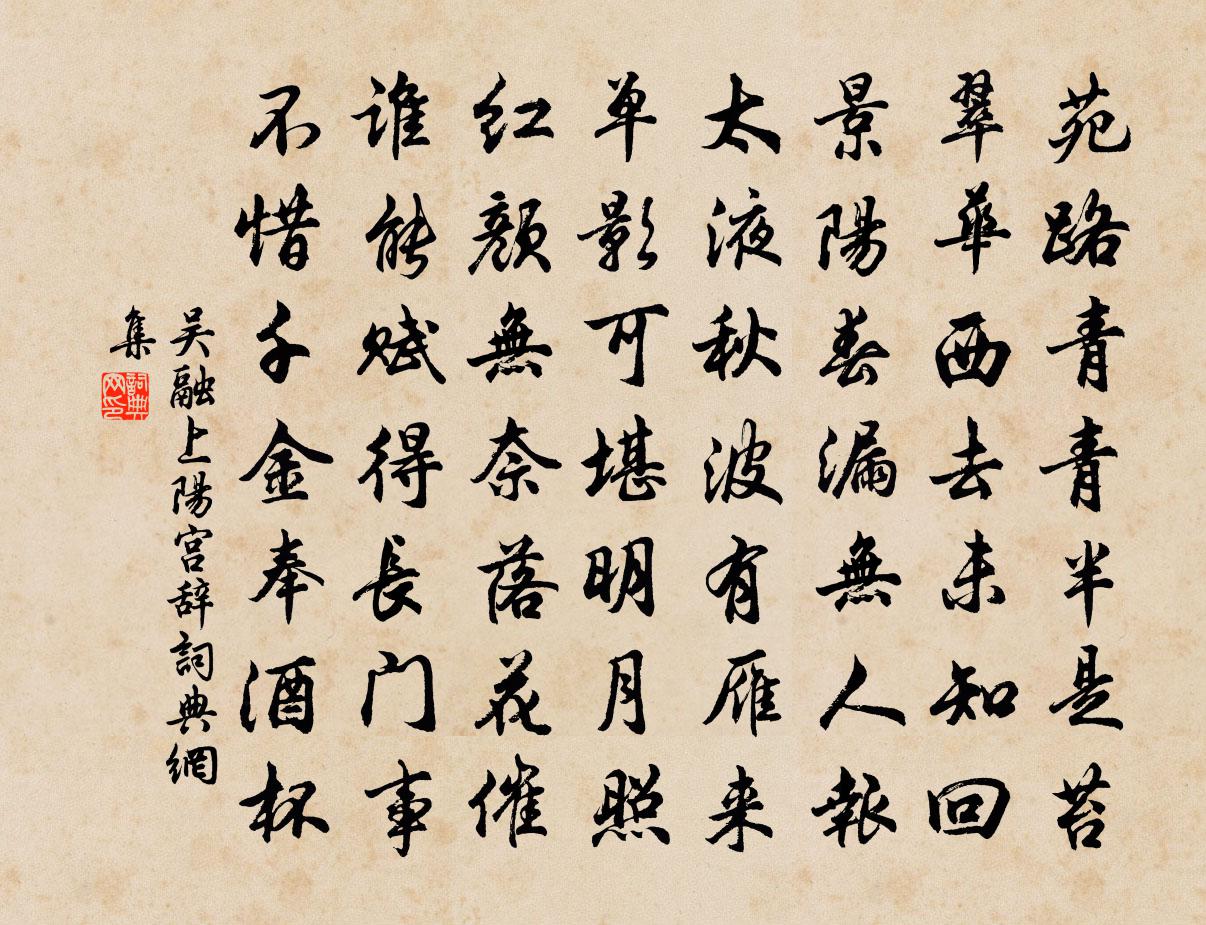 苑路青青半是苔
翠華西去未知回
景陽春漏無人報
太液秋波有雁来
单影可堪明月照
红顔無奈落花催
谁能赋得長门事
不惜千金奉酒杯
吴融上陽宫辞詞典網
集
詞典
网印